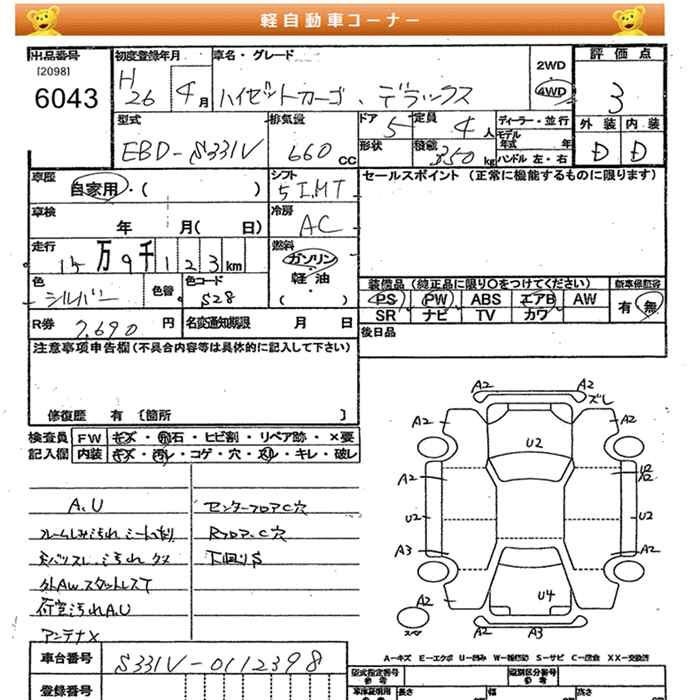 軽自動車コーナー
出品番号
[2098]
6043
初度登録年月
H26 4月
車名・グレード
ハイゼットカーゴ、デラックス
2WD
4WD
評価点
3
外装 内装
D D
型式
EBD-S331V
排気量
660 CC
ドア
5
定員
4人
形状
積載
350kg
ディーラー・並行
モデル年式 年
ハンドル 左・右
車歴
自家用・( )
シフト
5 I.MT
セールスポイント(正常に機能するものに限ります)
車検
年 月( 日)
冷房
AC
走行
万9千123km
燃料
ガソリン・軽油・( )
色
シルバー
色替
色コード
S28
装備品(純正品に限り○をつけてください)
PS PW ABS エアB AW
SR ナビ TV カワ
新車保証書
有・無
R券
7,690円
名変通知期限 月 日
後日品
注意事項申告欄(不具合内容等は具体的に記入して下さい)
修復歴 有 〔箇所 〕
検査員記入欄
FW キズ・飛石・ヒビ割・リペア跡・×要
内装 キズ・汚れ・コゲ・穴・スレ・キレ・破レ
A,U
センターフロアC穴
RフロアC穴
下回りS
外AW.スタットレスT
荷室汚れA.U
アンテナX
A2 A2
ズレ
A2 A2
U2
A2
U2 U2
A3 A2
U4
A2 A2
A2 A3
スペア
車台番号
S331V-0112398
登録番号
A-キズ E-エクボ U-凹み W-補修跡 S-サビ C-腐食 XX-交換済
型式指定番号
参考
類別区分番号
参考
長さ 幅 高さ